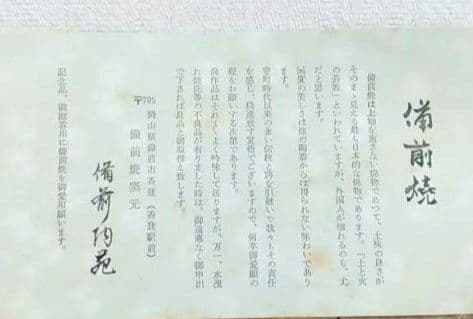 備前焼
備前焼は上釉を施さない焼物であつて、土味の良さが
そのまゝ見える最も日本的な焼物であります。「土と火
の芸術」といわれていますが、外国人が憧れるのも、尤
だと思います。
窯変の美しさは他の陶器からは得られない味わいであり
ます。
室町時代以来の永い伝統と誇を引継いで我々もその責任
を感じ、精進致す覚悟でございますので、何卒御愛顧の
程をお願いする次第であります。
尚作品はそれぞれよく吟味して居りますが、万一、水洩
れ破損等の不良品が有りました時は、御遠慮なく御申出
で下されば良品と御取替え致します。
〒705 岡山県備前市香登(香登駅前)
備前焼窯元
備前陶苑
記念品、御贈答用に備前焼を御愛用願います。